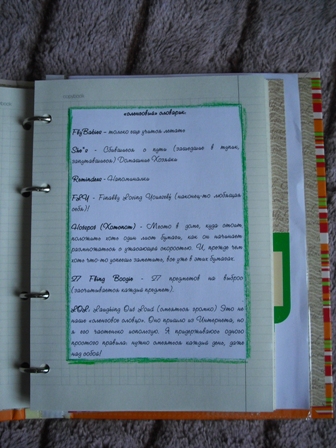 «флаевские» словарь.
FlyBabies - только еще учимся летать
She's - Сбившиеся с пути (зашедшие в тупик,
запутавшиеся) Домашние Хозяйки
Reminders - Напоминалки
FLY - Finally Loving Yourself (наконец-то любящая
себя)!
Hotspot (Хотспот) - Место в доме, куда стоит
положить хоть один лист бумаги, как он начинает
размножаться с ужасающей скоростью. И, прежде чем
хоть что-то успеешь заметить, все уже в этих бумагах.
27 Fling Boogie - 27 предметов на выброс
(засчитывается каждый предмет).
LOL: Laughing Out Loud (смеяться громко) Это не
наше «флаевское слово». Оно пришло из Интернета, но
я его частенько использую. Я придерживаюсь одного
простого правила: нужно смеяться каждый день, даже
над собой!